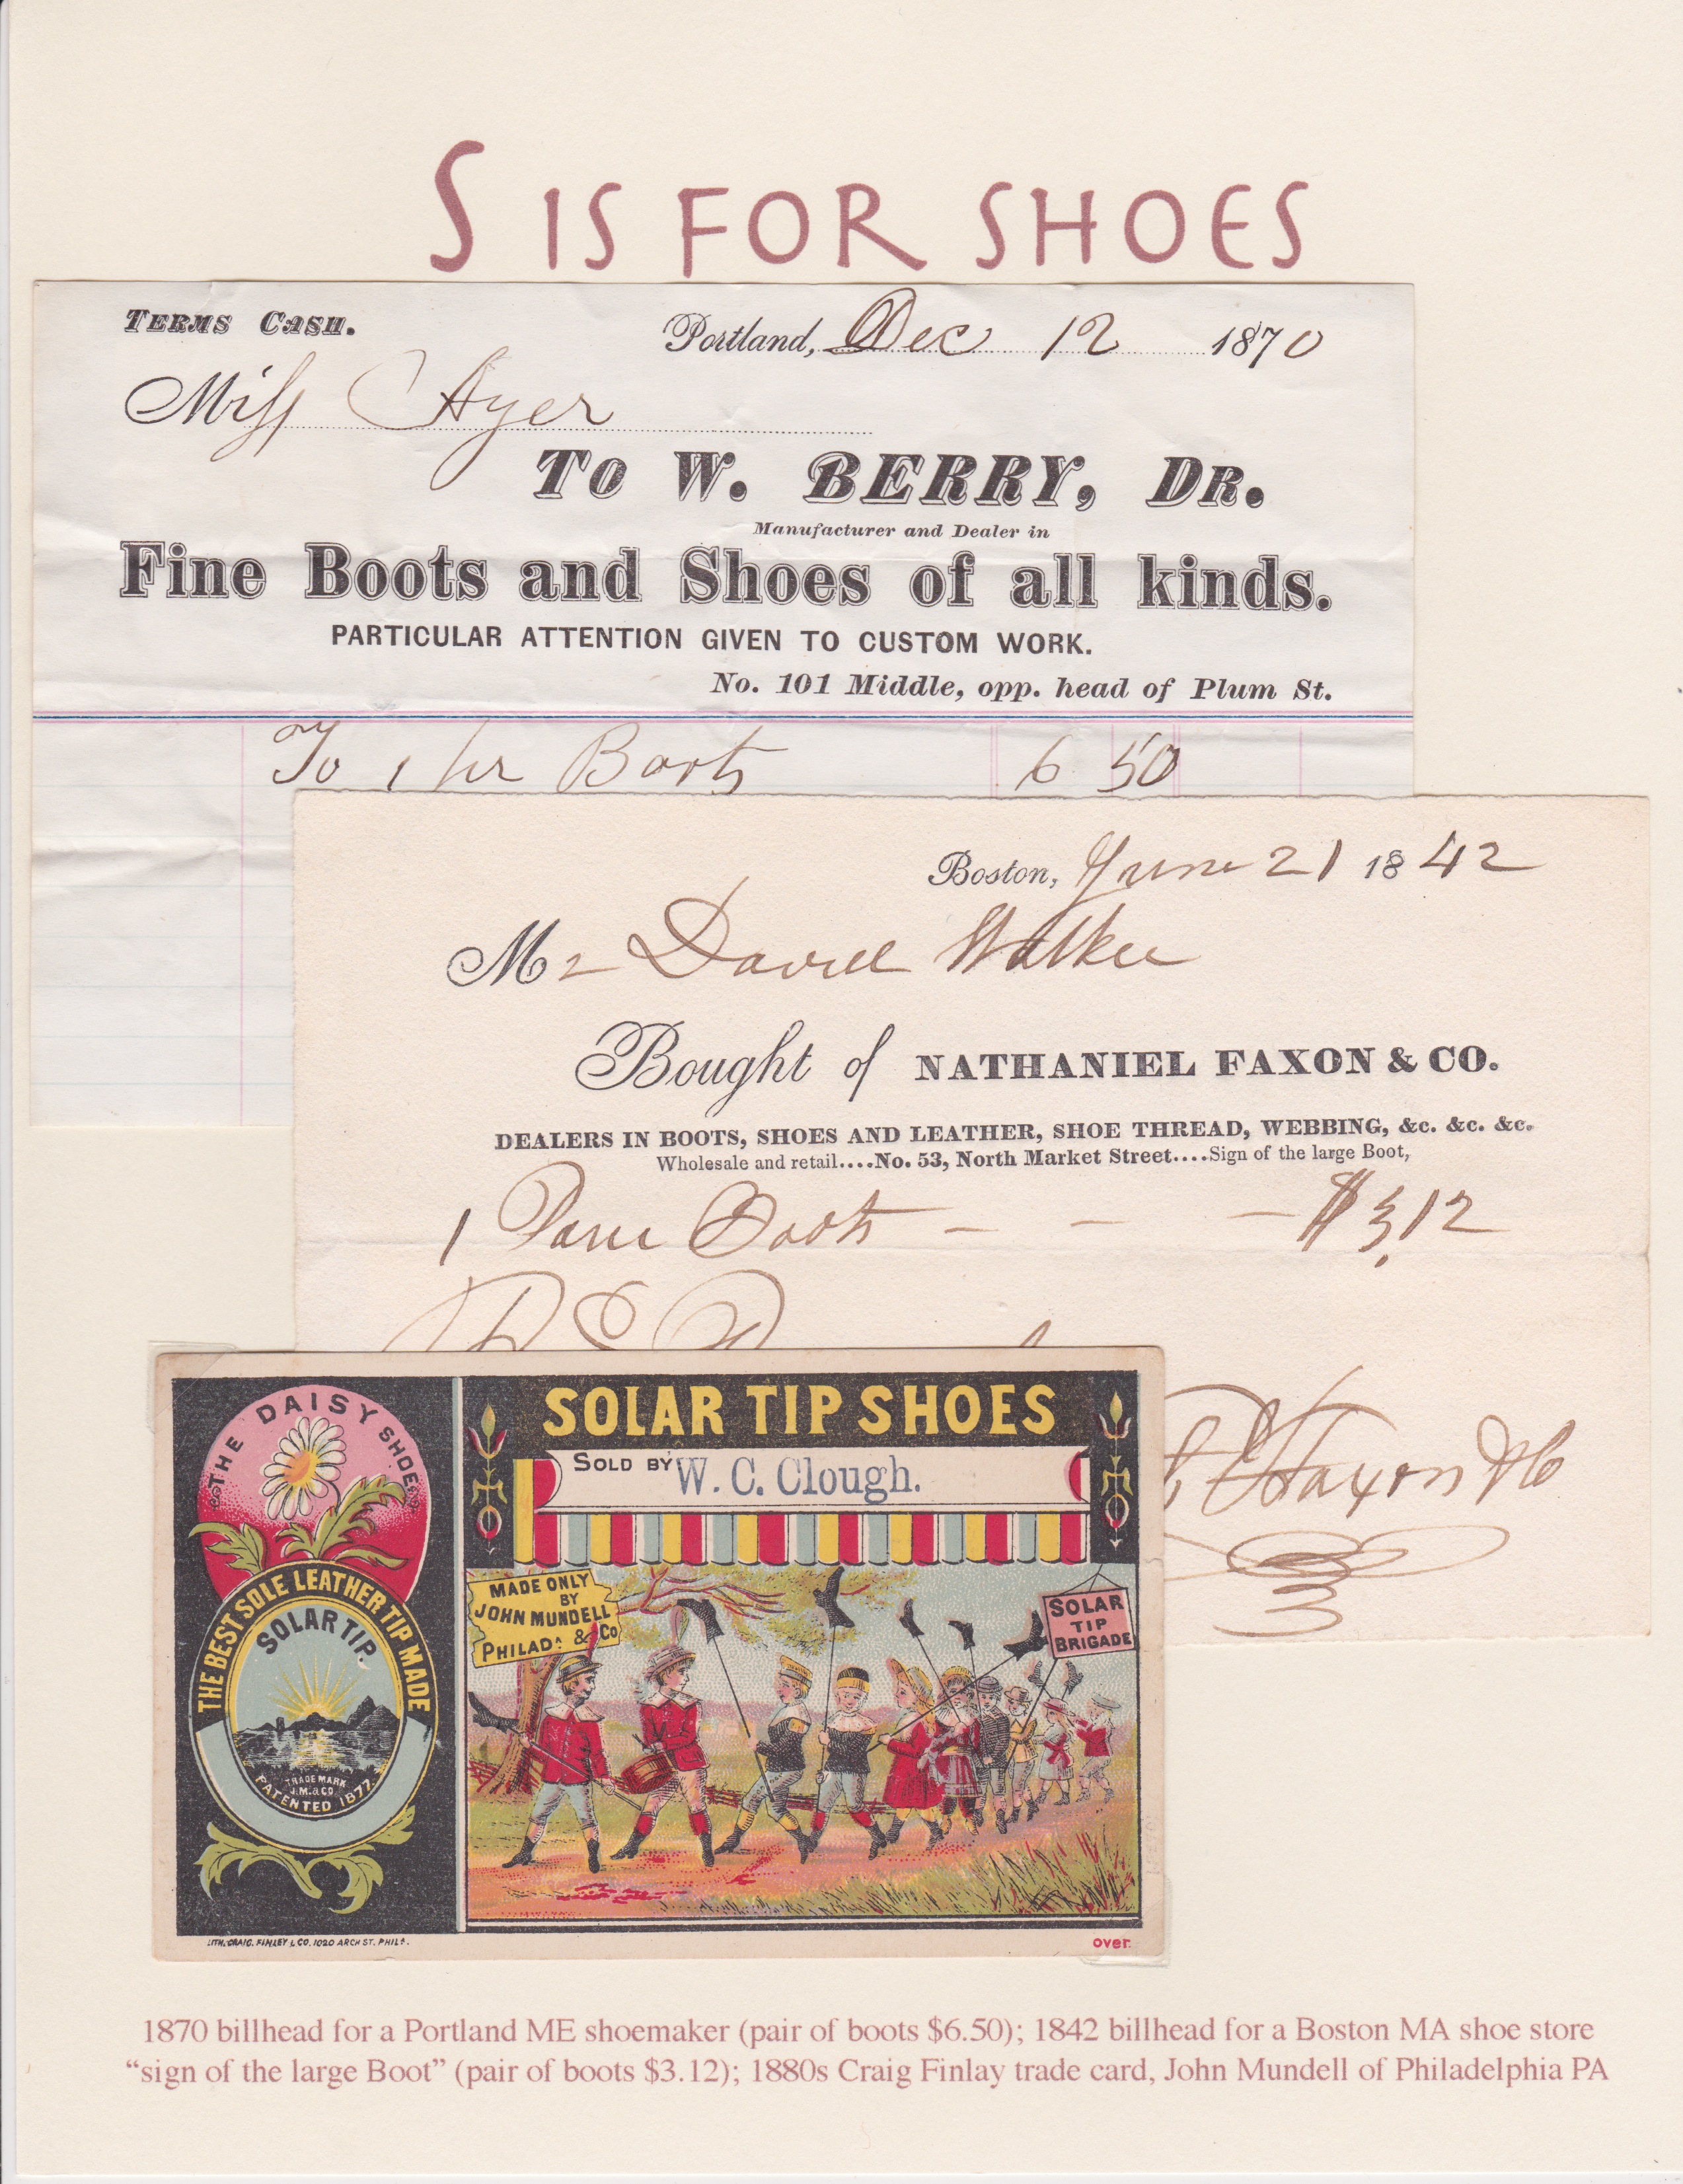 S IS FOR SHOES
TERMS CASH.
Portland, Dec 12 1870
Miss Ayer
TO W. BERRY, DR.
Manufacturer and Dealer in
Fine Boots and Shoes of all kinds.
PARTICULAR ATTENTION GIVEN TO CUSTOM WORK.
No. 101 Middle, opp. head of Plum St.
To 1 pr Boots 6 50
Boston, June 21 1842
Mr David Walker
Bought of NATHANIEL FAXON & CO.
DEALERS IN BOOTS, SHOES AND LEATHER, SHOE THREAD, WEBBING, &c. &c. &c.
Wholesale and retail....No. 53, North Market Street....Sign of the large Boot,
1 Pair Boots - - - $3,12
Faxon & Co
THE DAISY SHOE
THE BEST SOLE LEATHER TIP MADE
SOLAR TIP.
TRADE MARK
J.M. & CO.
PATENTED 1877.
SOLAR TIP SHOES
SOLD BY W. C. Clough.
MADE ONLY
BY
JOHN MUNDELL
& Co
PHILADA
SOLAR
TIP
BRIGADE
LITH. CRAIG, FINLEY & CO. 1020 ARCH ST. PHILA.
over.
1870 billhead for a Portland ME shoemaker (pair of boots $6.50); 1842 billhead for a Boston MA shoe store
“sign of the large Boot” (pair of boots $3.12); 1880s Craig Finlay trade card, John Mundell of Philadelphia PA